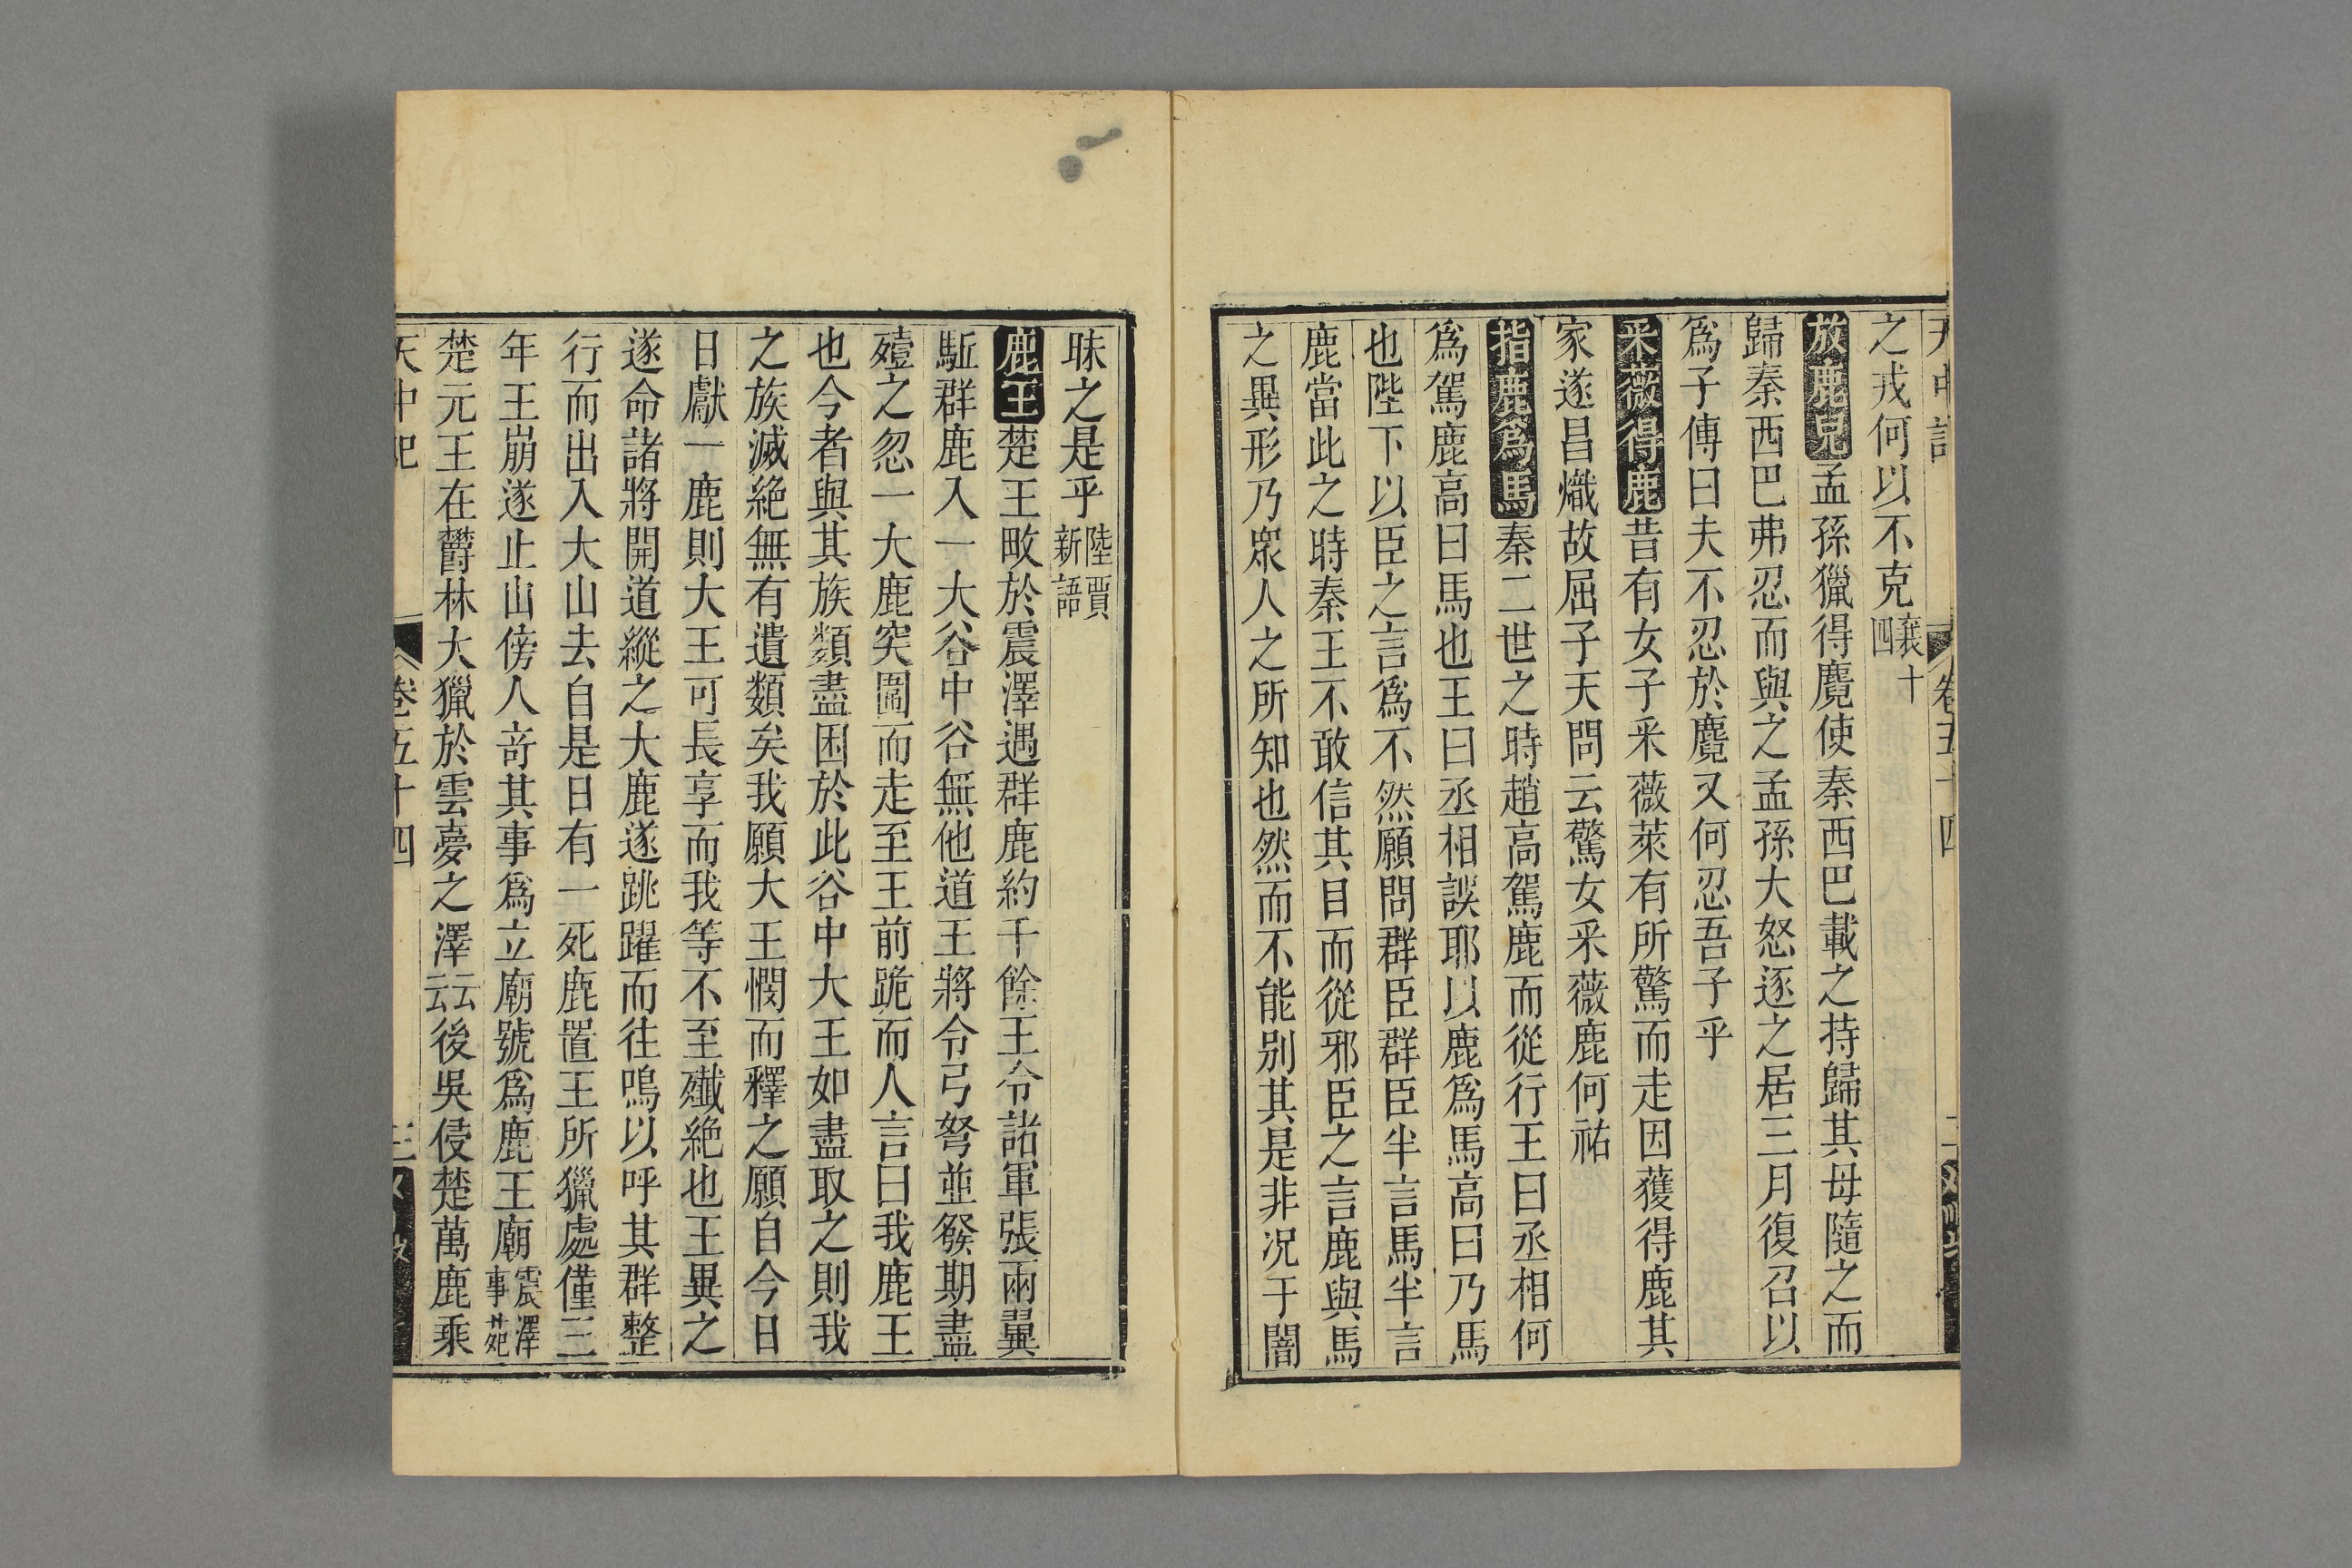 之戎何以不克襄十四
放鹿麑孟孫獵得麑使秦西巴載之持歸其母隨之而
歸秦西巴弗忍而與之孟孫大怒逐之居三月復召以
爲子傅曰夫不忍於麑又何忍吾子乎
采薇得鹿昔有女子采薇菜有所驚而走因獲得鹿其
家遂昌熾故屈子天問云驚女采薇鹿何祐
指鹿爲馬秦二世之時趙高駕鹿而從行王曰丞相何
爲駕鹿高曰馬也王曰丞相誤耶以鹿爲馬高曰乃馬
也陛下以臣之言爲不然願問群臣群臣半言馬半言
鹿當此之時秦王不敢信其目而從邪臣之言鹿與馬
之異形乃眾人之所知也然而不能別其是非況于闇
昧之是乎陸賈新語
鹿王楚王畋於震澤遇群鹿約千餘王令諸軍張兩翼
駈群鹿入一大谷中谷無他道王將令弓弩並發期盡
殪之忽一大鹿突圍而走至王前跪而人言曰我鹿王
也今者與其族類盡困於此谷中大王如盡取之則我
之族滅絕無有遺類矣我願大王憫而釋之願自今日
日獻一鹿則大王可長享而我等不至殲絕也王異之
遂命諸將開道縱之大鹿遂跳躍而往鳴以呼其群整
行而出入大山去自是日有一死鹿置王所獵處僅三
年王崩遂止山傍人奇其事爲立廟號爲鹿王廟震澤事苑
楚元王在欝林大獵於雲夢之澤云云後吳侵楚萬鹿乘
天中記 卷五十四 三